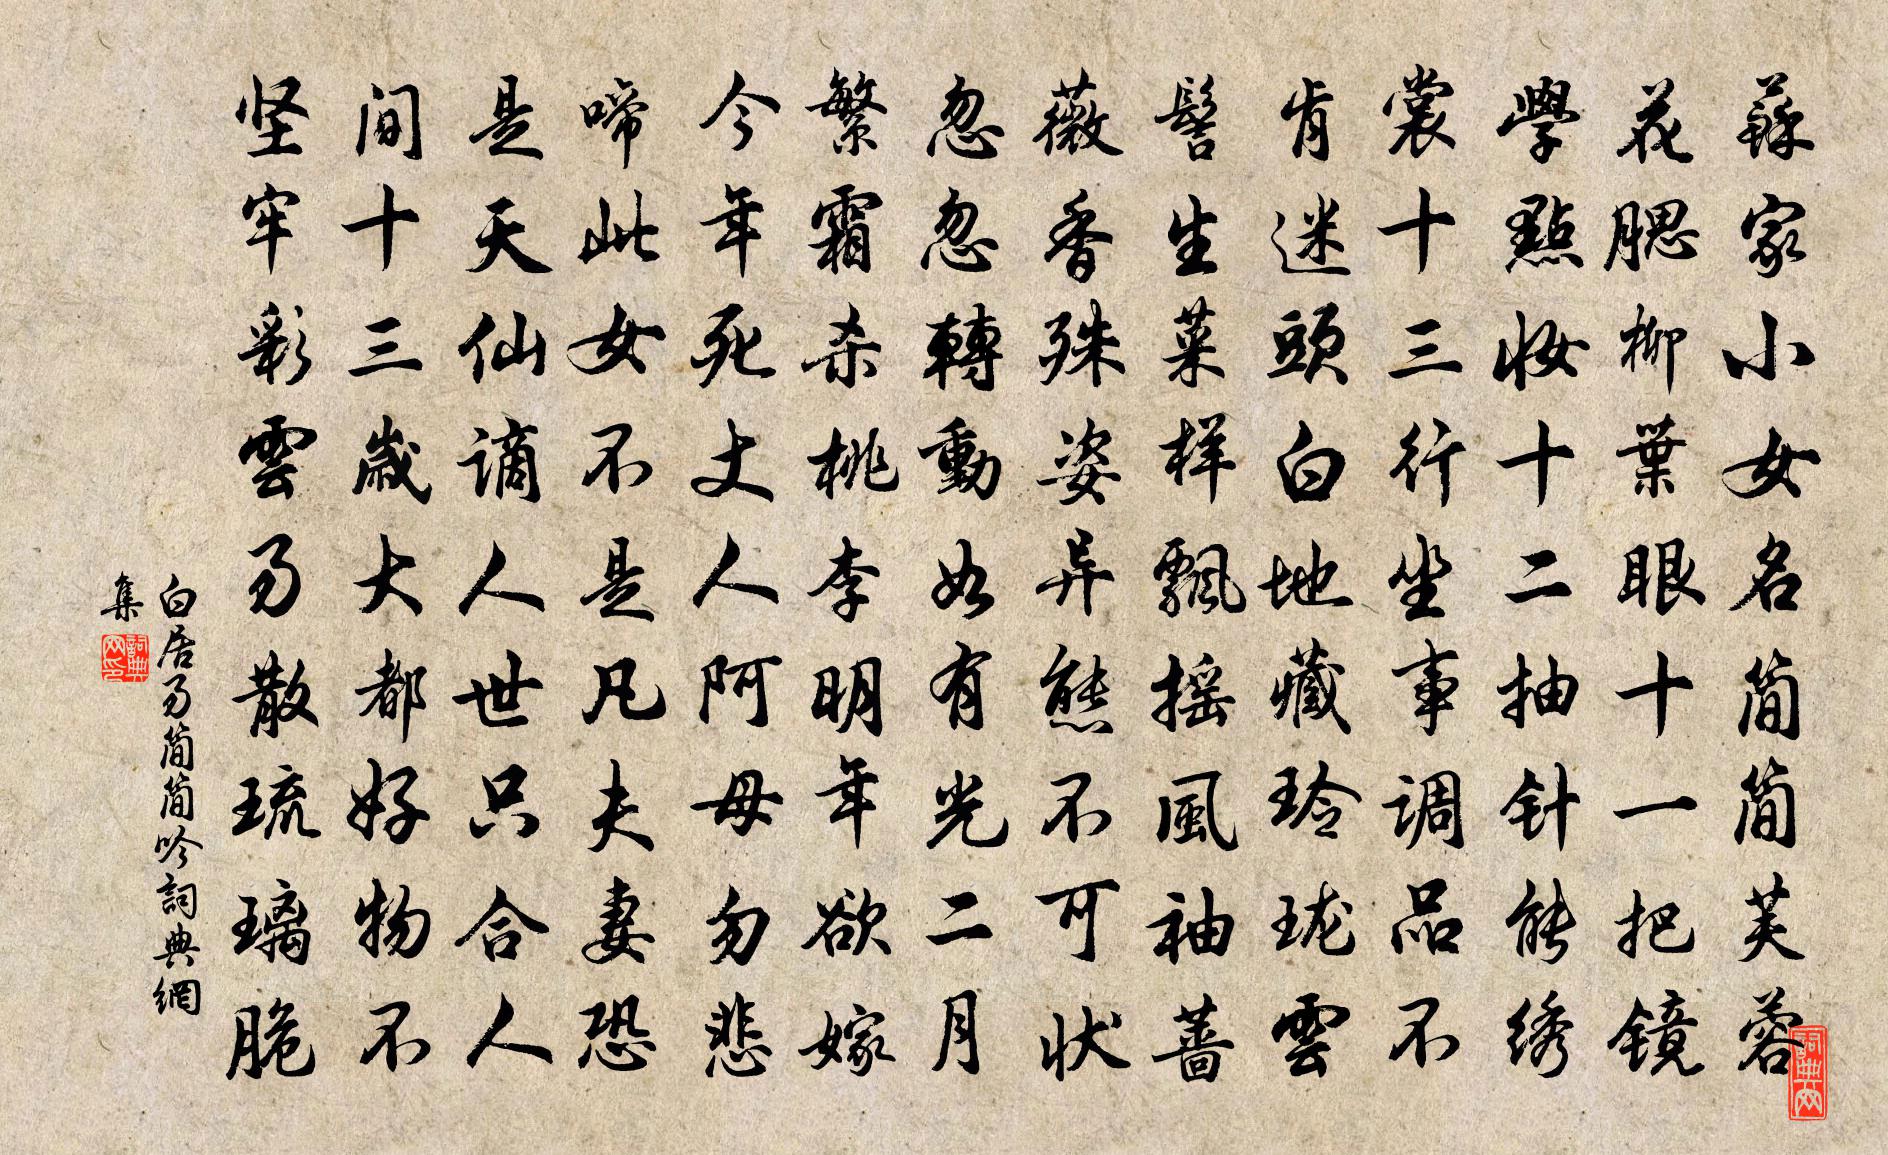 蘇家小女名简简芙蓉
花腮柳葉眼十一把镜
學點妆十二抽针能绣
裳十三行坐事调品不
肯迷頭白地藏玲珑雲
髻生菜样飘摇風袖蔷
薇香殊姿异態不可状
忽忽轉動如有光二月
繁霜杀桃李明年欲嫁
今年死丈人阿母勿悲
啼此女不是凡夫妻恐
是天仙谪人世只合人
间十三歲大都好物不
坚牢彩雲易散琉璃脆
白居易简简吟詞典網
集
詞典网
詞典
网